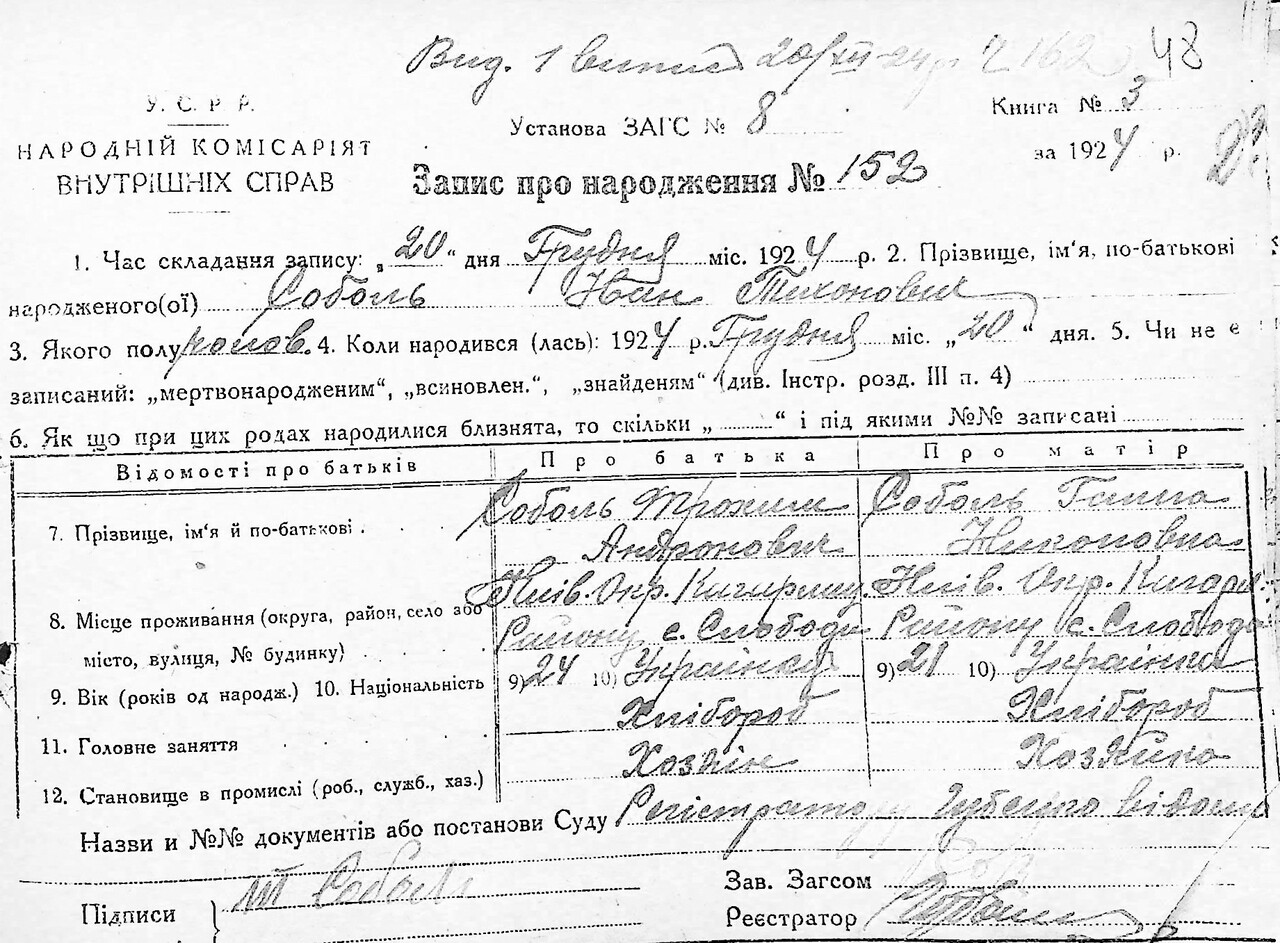 Вид. 1 випис 20/XII-24 р. Ч 162 48
У. С. Р. Р.
НАРОДНІЙ КОМІСАРІЯТ
ВНУТРІШНІХ СПРАВ
Установа ЗАГС № 8
Книга № 3
за 1924 р.
Запис про народження № 152
1. Час складання запису: „20“ дня Грудня міс. 1924 р. 2. Прізвище, ім'я, по-батькові
народженого(ої) Соболь Іван Тихонович
3. Якого полу 4. Коли народився (лась): 1924 р. Грудня міс. „20“ дня. 5. Чи не є
записаний: „мертвонародженим“, „всиновлен.“, „знайденям“ (див. Інстр. розд. III п. 4)
6. Як що при цих родах народилися близнята, то скільки „ “ і під якими №№ записані
Відомості про батьків Про батька Про матір
7. Прізвище, ім'я й по-батькові . Соболь Трохим Соболь Ганна
Андронович Никоновна
8. Місце проживання (округа, район, село або Київ. Окр. Київ. Окр.
місто, вулиця, № будинку) Району с. Слободи Району с. Слобода
9. Вік (років од народж.) 10. Національність 9) 24 10) 9) 21 10) Українка
11. Головне заняття Хлібороб Хлібороб
12. Становище в промислі (роб., служб., хаз.) Хозяін Хозяйка
Назви и №№ документів або постанови Суду
Підписи Соболь
Зав. Загсом
Реєстратор